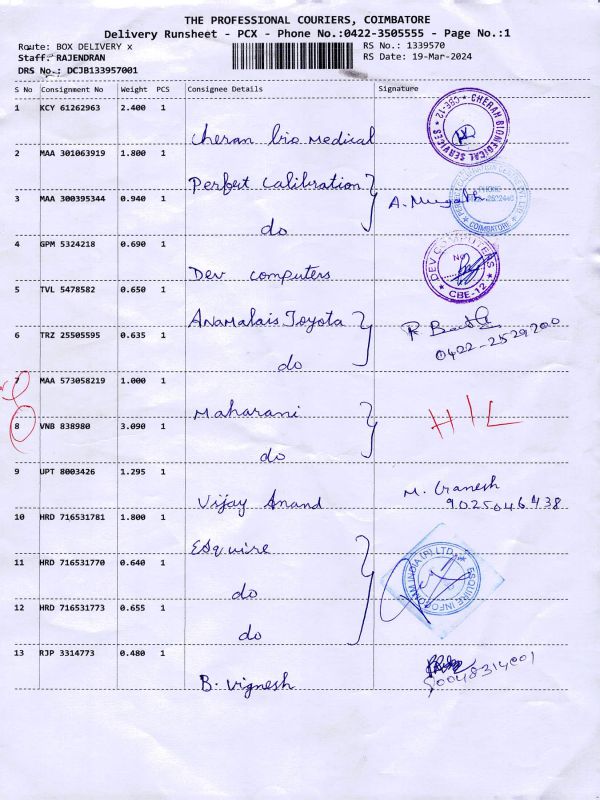 THE PROFESSIONAL COURIERS, COIMBATORE
Delivery Runsheet - PCX - Phone No.:0422-3505555 - Page No.:1
Route: BOX DELIVERY x
RS No.: 1339570
Staff: RAJENDRAN
RS Date: 19-Mar-2024
DRS No.: DCJB133957001
S No Consignment No Weight PCS Consignee Details Signature
1 KCY 61262963 2.400 1
Cheran bio Medical
CHERAN BIOMEDICAL SERVICES CBE-12
2 MAA 301063919 1.800 1
Perfect Calibration
3 MAA 300395344 0.940 1
do
COIMBATORE
4 GPM 5324218 0.690 1
Dev computers
DEV COMPUTERS CBE-12
5 TVL 5478582 0.650 1
Anamalais Toyota
6 TRZ 25505595 0.635 1
do
0422-2529200
7 MAA 573058219 1.000 1
Maharani
8 VNB 838980 3.090 1
do
HIL
9 UPT 8003426 1.295 1
Vijay Anand
M. Ganesh
9025046438
10 HRD 716531781 1.800 1
Esquire
11 HRD 716531770 0.640 1
do
12 HRD 716531773 0.655 1
do
13 RJP 3314773 0.480 1
B. Vignesh